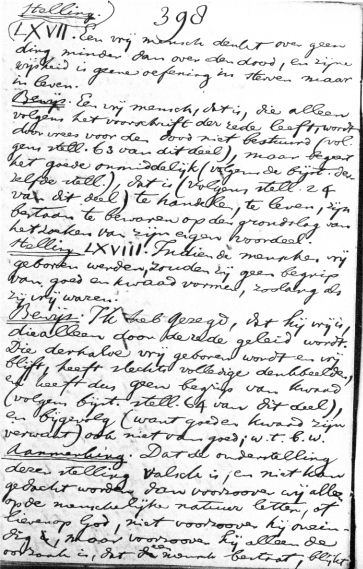 398
Stelling.
LXVII. Een vrij mensch denkt over geen
ding minder dan over den dood, en zijne
wijsheid is geene oefening in sterven maar
in leven.
Bewijs. Een vrij mensch, dat is, die alleen
volgens het voorschrift der rede leeft, wordt
door vrees voor den dood niet bestuurd (vol
gens stell. 63 van dit deel), maar begeert
het goede onmiddelijk (volgens de bijst. der
zelfde stell.), dat is (volgens stell. 24
van dit deel) te handelen, te leven, zijn
bestaan te bewaren op den grondslag van
het zoeken van zijn eigen voordeel.
Stelling LXVIII. Indien de menschen vrij
geboren werden, zouden zij geen begrip
van goed en kwaad vormen, zoolang als
zij vrij waren.
Bewijs. Ik heb gezegd, dat hij vrij is,
die alleen door de rede geleid wordt.
Die derhalve vrij geboren wordt en vrij
blijft, heeft slechts volledige denkbeelden,
en heeft dus geen begrip van kwaad
(volgens bijst. stell. 64 van dit deel),
en bijgevolg (want goed en kwaad zijn
verwant) ook niet van goed; w. t. b. w.
Aanmerking. Dat de onderstelling
dezer stelling valsch is, en niet kan
gedacht worden dan voorzoover wij alleen
op de menschelijke natuur letten, of
liever op God, niet voorzoover hij onein-
dig is, maar voorzoover hij alleen de
oorzaak is, dat de mensch bestaat, blijkt